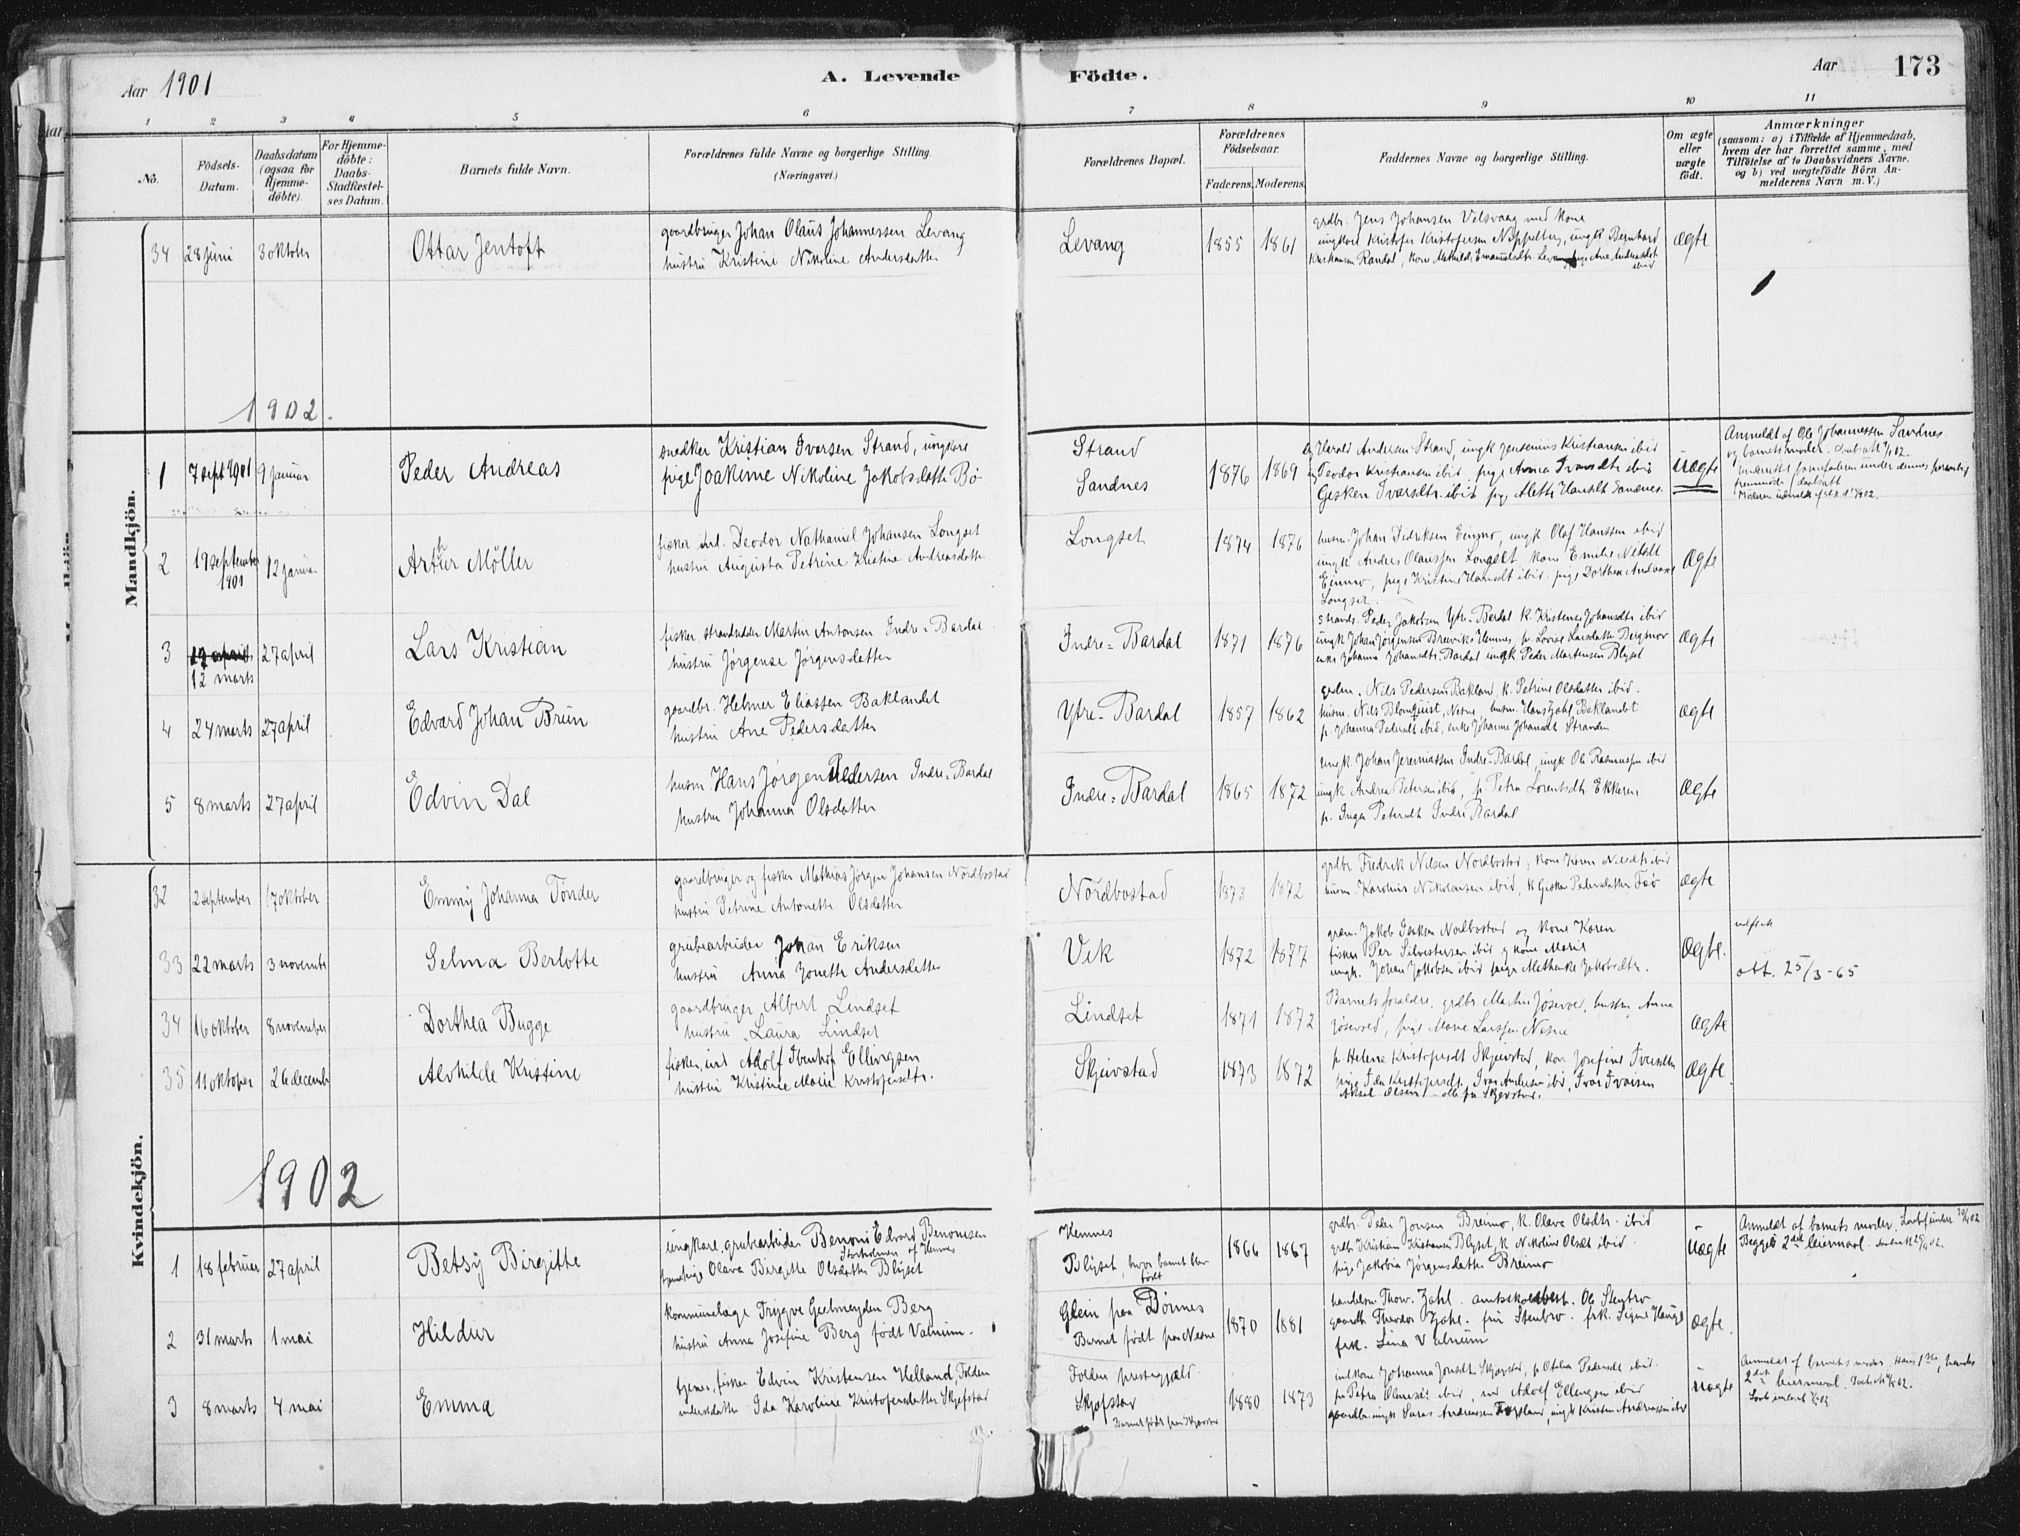 Aar 1901
A. Levende
Födte.
Aar
173
1 2 3 4 5 6 7 8 9 10 11
No.
Födsels-Datum.
Daabsdatum (ogsaa for Hjemme-döbte).
For Hjemme-döbte: Daabs-Stadfæstel-ses Datum.
Barnets fulde Navn.
Forældrenes fulde Navne og borgerlige Stilling. (Næringsvei.)
Forældrenes Bopæl.
Forældrenes Födselsaar.
Faderens. Moderens.
Faddernes Navne og borgerlige Stilling.
Om ægte eller uægte födt.
Anmærkninger
(saasom: a) i Tilfælde af Hjemmedaab,
hvem der har forrettet samme, med
Tilföielse af to Daabsvidners Navne.
og b) ved uægtefödte Börn An-
melderens Navn m. V.)
Mandkjön.
34 28 juni 3 oktober Ottar Jentoft
gaardbruger Johan Olaus Johannessen Levang
hustru Kristine Nikoline Andersdatter
Levang 1855 1861
grdbr. Jens Johansen Velsvaag med kone
ungkar Kristofer Kristofersen Nippelberg, ungk Bernhard
Kristiansen Randal, kone Mathilde Emanuelsdtr Levang, pige Ane Andreasdt
ibid
ægte
1902.
1 7 sept 1901 9 januar Peder Andreas
snedker Kristian Iversen Strand, ungkare
pige Joakime Nikoline Jakobsdatter Bø
Strand
Sandnes
1876 1869
Harald Andersen Strand, ungk Jentenius Kristiansen ibid
Teodor Kristiansen ibid, pige Anna Iversdtr ibid
Gesken Iversdtr. ibid pig Alette Hansdt Sandnes.
uægte
Anmeldt af Ole Johannessen Sandnes
og barnets moder.
2 19 september 1901 12 januar Arthur Möller
fisker ind. Deodor Nathaniel Johansen Longset
hustru Augusta Petrine Kristine Andreasdatter
Longset 1874 1876
husm. Johan Didriksen Einmo, ungk Olaf Hanssen ibid
ungk Anders Olaussen Longset, kone Emilie Nelsdt
Einmo, pige Kristine Hansdt ibid. pige Dorthea
Longset.
ægte
3 27 april 12 marts 27 april Lars Kristian
fisker, strandsidder Martin Antonsen Indre-Bardal
hustru Jørgense Jørgensdatter
Indre-Bardal 1871 1876
strands. Peder Jakobsen Ytre-Bardal k. Kristence Johansdtr ibid
ungk Johan Jørgensen Breivik, Hemnes, p. Lovise Larsdatter Bergmo
enke Johanna Johansdtr. Bardal ungk Peder Martensen Blyset
ægte
4 24 marts 27 april Edvard Johan Brun
gaardbr. Helmer Eliassen Baklandet
hustru Ane Pedersdatter
Ytre-Bardal 1857 1862
grdm. Nils Pedersen Bakland, k. Petrine Olsdatter ibid.
husm. Nils Blomquist, Nesne, husm. Hans Zahl Baklandet
p. Johanna Pedersdt ibid, enke Johanne Johansdt Stranden
ægte
5 8 marts 27 april Edvin Dal
husm. Hans Jørgen Pedersen Indre-Bardal
hustru Johanna Olsdatter
Indre-Bardal 1865 1872
ungk. Johan Jeremiassen Indre-Bardal, ungk Ole Rasmussen ibid
ungk Andreas Petersen ibid, p. Petra Lorentsdtr Ekkeren
p. Inga Petersdt Indre Bardal
ægte
Kvindekjön.
32 2 september 17 oktober Emmy Johanna Tönder
gaardbruger og fisker Mathias Jørgen Johansen Nordbostad
hustru Petrine Antonette Olsdatter
Nordbostad 1873 1872
grdbr. Fredrik Nilsen Nordbostad, kone Karen Nilsdt ibid
husm. Karolius Nikolaisen ibid, k Gesken Pedersdatter
ægte
33 22 marts 3 novembr Selma Berlotte
grubearbeider Johan Eriksen
hustru Anna Jonette Andersdatter
Vik 1872 1877
grdm. Jakob Nordbostad og kone Karen
fisker Per Silvestersen ibid og kone Marie
ungk. Johan Jakobsen ibid pige Jakobsdtr.
ægte.
25/3-65
34 16 oktober 8 november Dorthea Bugge
gaardbruger Albert Lindset
hustru Laura Lindset
Lindset 1871 1872
Barnets foraldre, grdbr. Martin Jøsevold, hustru Anna
Jøsevold, pige Marie Larssen Nesne
ægte
35 11 oktober 26 decembr Alvhilde Kristine
fisker, ind Adolf Ibenhof Ellingsen
hustru Kristine Marie Kristofersdtr.
Skjevstad 1873 1872
p. Helene Kristofersdt Skjevstad, kon Josefine Iversdtr
pige Ida Kristofersdt. Ivar Andersen ibid, Ivar Iversen
Aksel Olsen alle fra Skjevstad.
ægte.
1902
1 18 februar 27 april Betsy Birgitte
ungkare, grubearbeider Benoni Edvard Benonisen
Storholmen af Hemnes
tjenpige Olava Birgitte Olsdatter Blyset
Hemnes
Blyset, hvor barnet blev
født
1866 1867
grdbr. Peder Jonsen Breimo, k. Olava Olsdtr. ibid
grdbr Kristian Kristiansen Blyset, k. Nikoline Olsdt ibid.
pige Jakobia Jørgensdatter Breimo
uægte
Anmeldt af barnets moder.
Begges 2det leiermaal.
2 31 marts 1 mai Hildur
kommunelæge Trygve Geelmeyden Berg
hustru Anna Josefine Berg født Valnum.
Glein paa Dönnes
Barnet født paa Nesne
1870 1881
handelsm. Thorv. Zahl. Ole Stenbro
gaardb Theodor Zahl. fru Stenbro. frk. Signe
frk. Lina Valnum
ægte.
3 8 marts 4 mai Emma
tjener, fisker Edvin Kristensen Helland, Folden
inderstdatter Ida Karoline Kristofersdatter Skjefstad
Folden prestegjæld
Skjefstad
Barnet født paa Skjevstad
1880 1873
indkone Johanna Jonsdt Skjevstad, p. Otelia Pedersdt ibid.
ibid, ind Adolf Ellingsen ibid
gaardbr. ungk Lars Andreassen Forsland, ungk Kristen Andreassen ibid
uægte
Anmeldt af barnets moder. Hans 1ste, hendes
2det leiermaal.